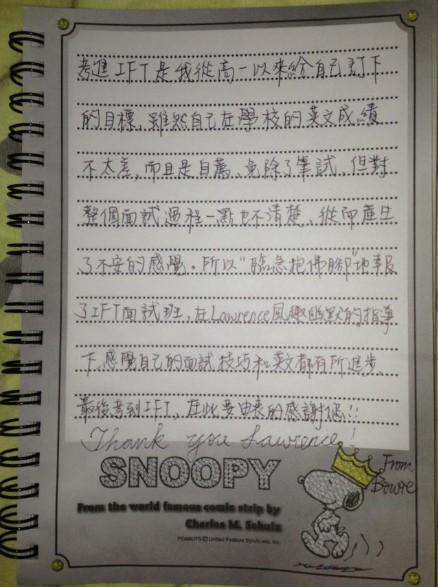 考進IFT是我從高一以來給自己訂下
的目標,雖然自己在學校的英文成績
不太差,而且是自薦、免除了筆試,但對
整個面試過程一點也不清楚,從而產生
了不安的感覺。所以"臨急抱佛腳"地報
了IFT面試班,在Lawrence風趣幽默的指導
下,感覺自己的面試技巧和英文都有所進步。
最後考到IFT,在此要由衷的感謝您!!
Thank you Lawrence!
From
SNOOPY
From the world famous comic strip by
Charles M. Schulz
PEANUTS © United Feature Syndicate, Inc.